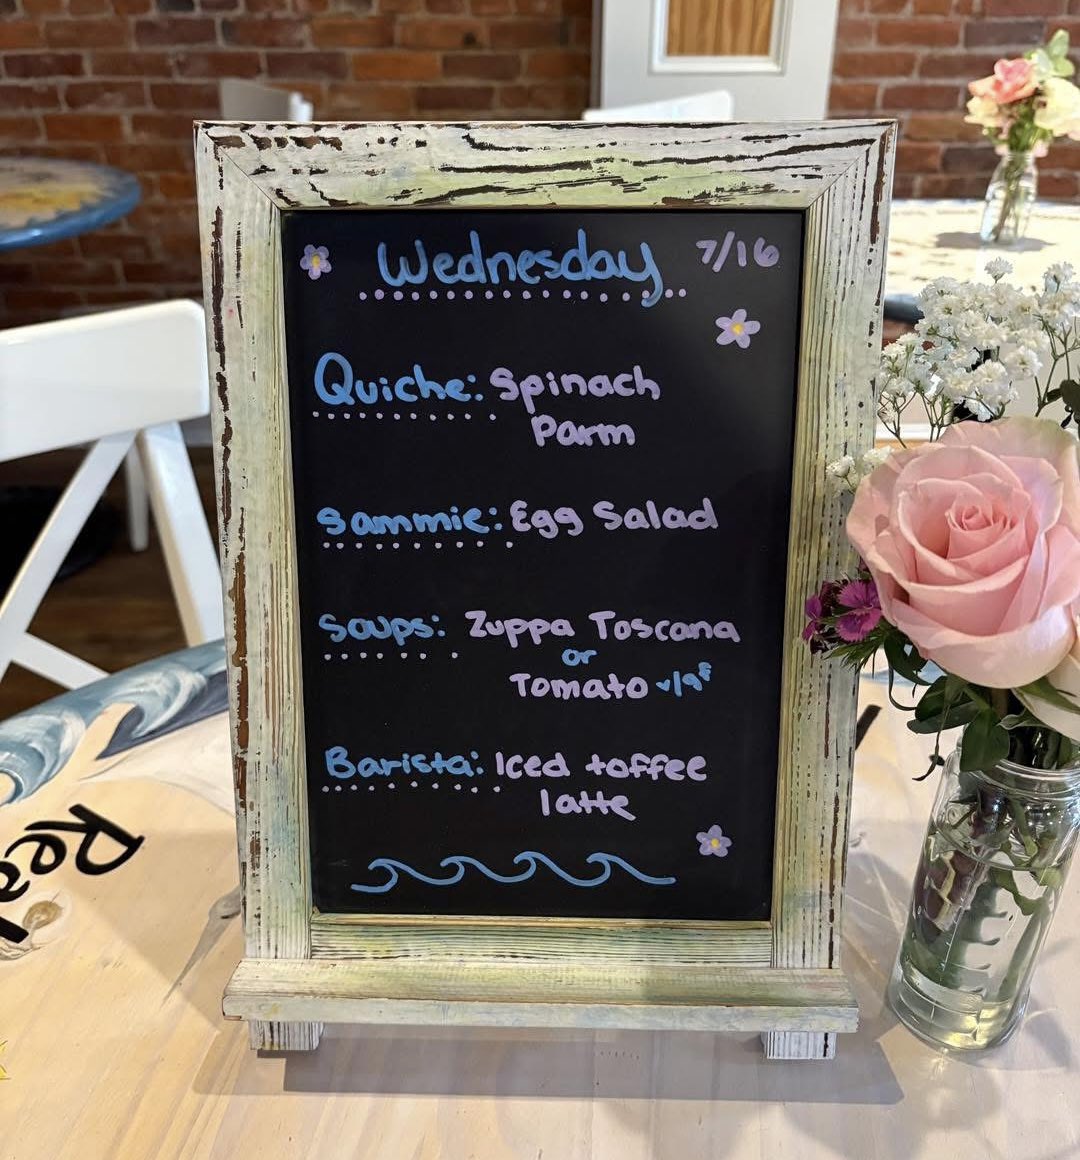 Wednesday 7/16
Quiche: Spinach
Parm
Sammie: Egg Salad
Soups: Zuppa Toscana
or
Tomato v/gf
Barista: Iced toffee
latte